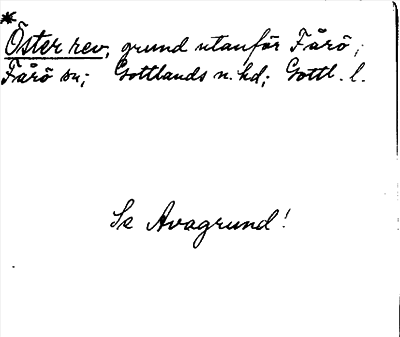 *
Öster rev, grund utanför Fårö,
Fårö sn; Gottlands n. hd; Gottl. l.
Se Avagrund!